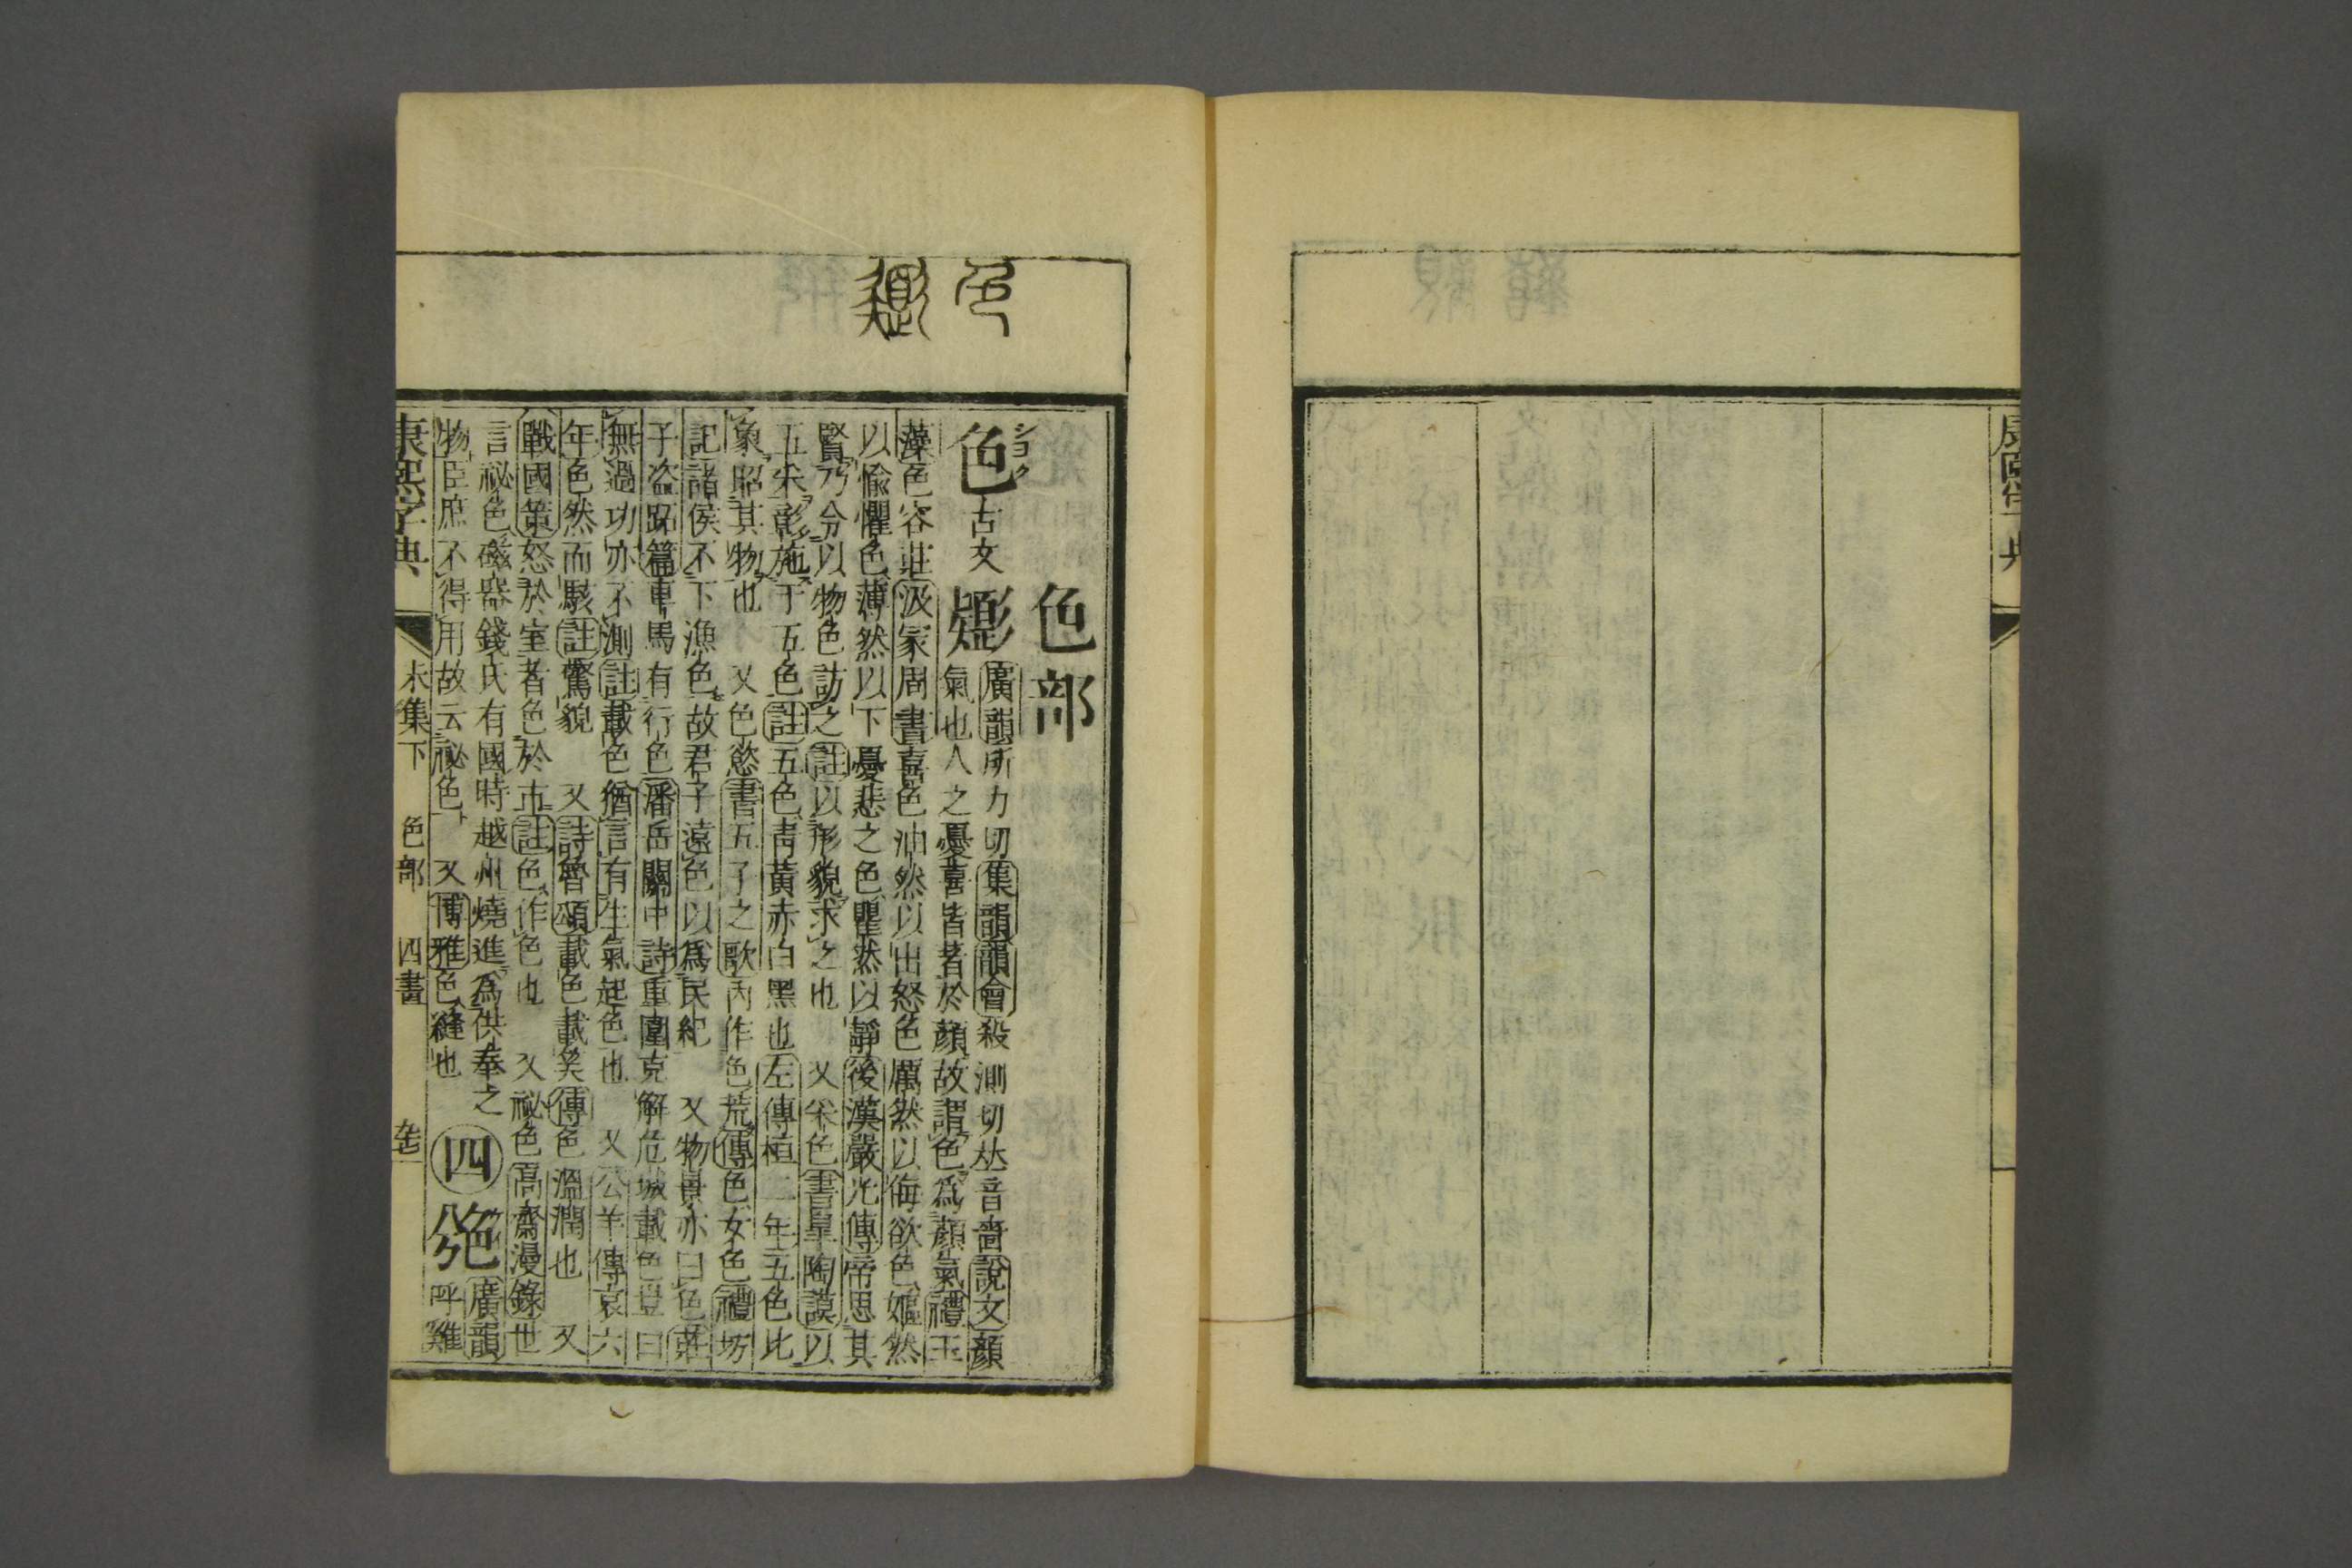 色
色部
色 シヨク 古文 𩒾
廣韻所力切集韻韻會殺測切𠀤音嗇說文顏
氣也人之憂喜皆著於顏故謂色爲顏氣禮玉
藻色容莊汲冢周書喜色油然以出怒色厲然以侮欲色嫗然
以愉懼色薄然以下憂悲之色瞿然以靜後漢嚴光傳帝思其
賢乃令以物色訪之註以形貌求之也 又采色書皐陶謨以
五采彰施于五色註五色靑黃赤白黑也左傳桓二年五色比
象昭其物也 又色慾書五子之歌內作色荒傳色女色禮坊
記諸侯不下漁色故君子遠色以爲民紀 又物景亦曰色莊
子盜跖篇車馬有行色潘岳關中詩重圍克解危城載色豈曰
無過功亦不測註載色猶言有生氣起色也 又公羊傳哀六
年色然而駭註驚貌 又詩魯頌載色載笑傳色溫潤也 又
戰國策怒於室者色於市註色作色也 又祕色高齋漫錄世
言祕色磁器錢氏有國時越州燒進爲供奉之
物臣庶不得用故云祕色 又博雅色縫也 四 䒌 廣韻
呼雞
康熙字典 未集下 色部 四畫